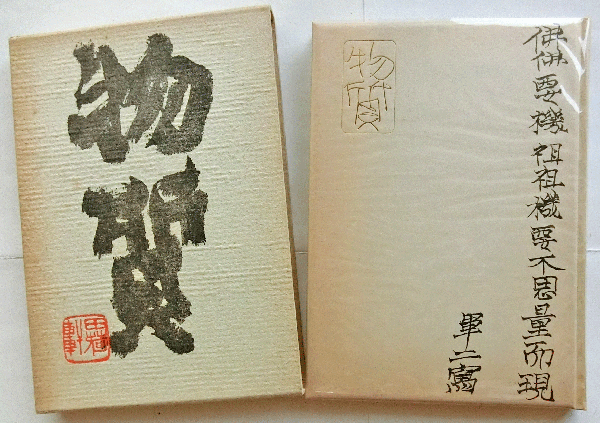 物質
物質
佛佛要機祖祖機要不思量而現
軍二寫